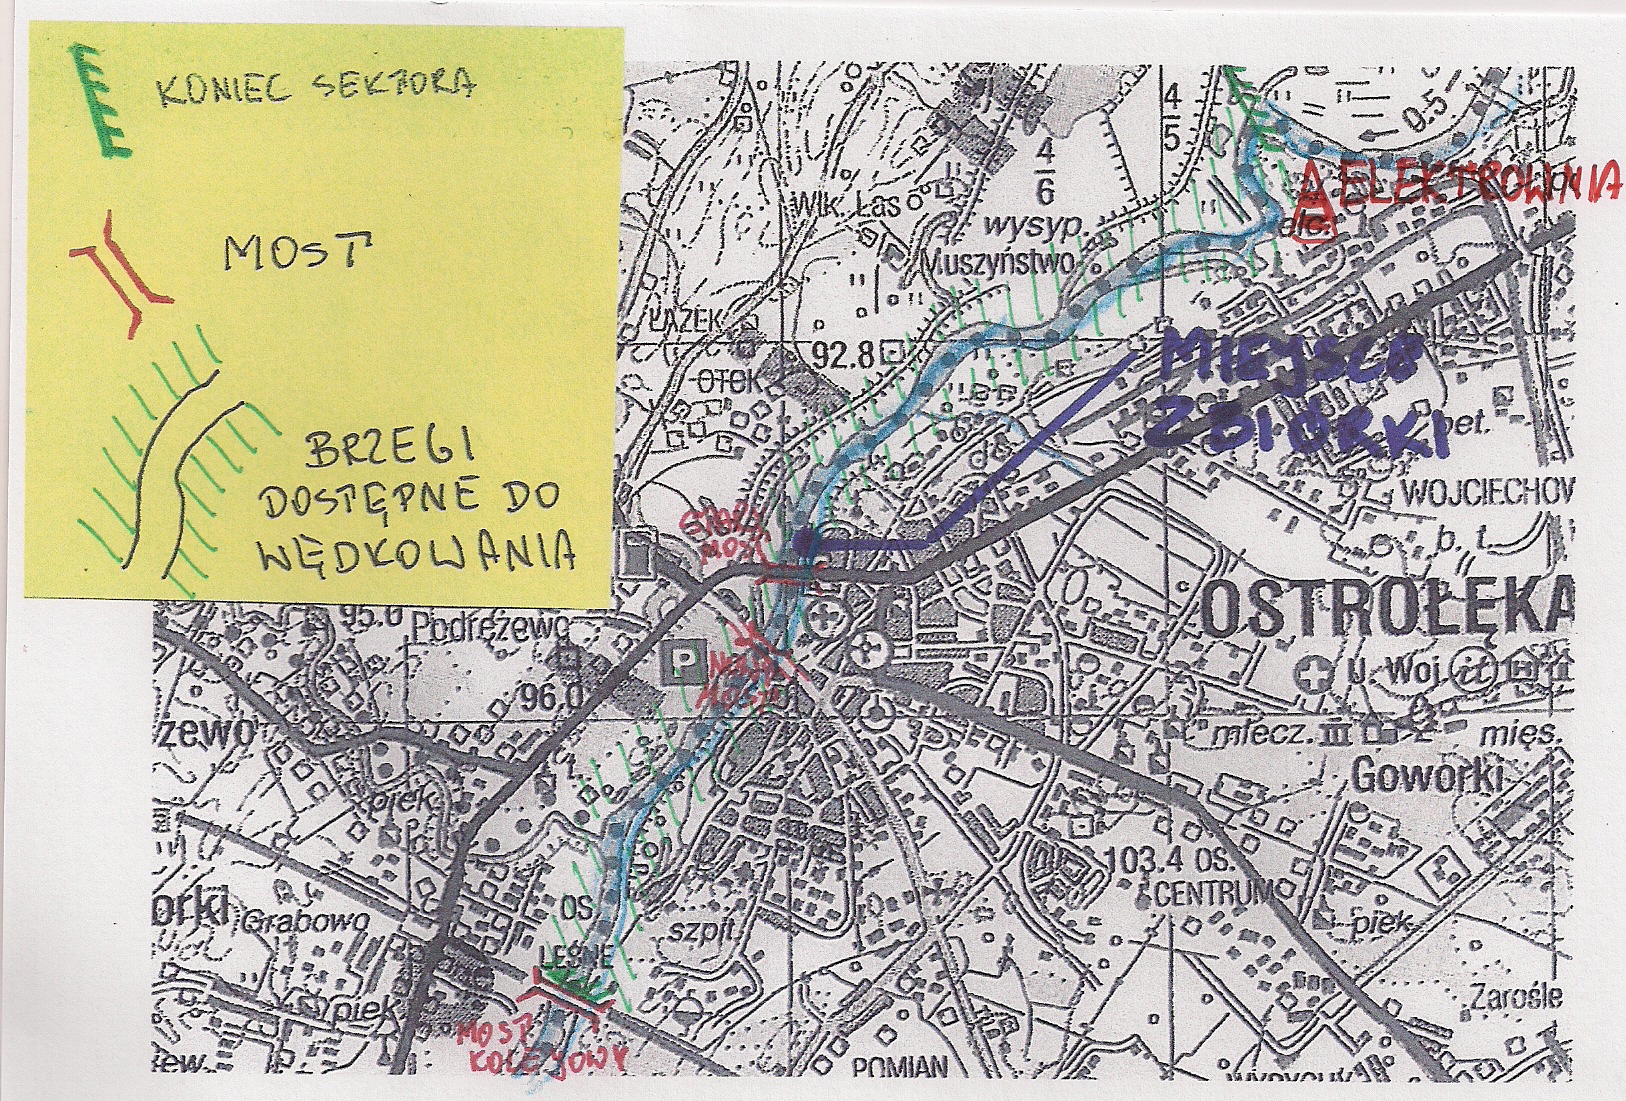 KONIEC SEKTORA
MOST
BRZEGI
DOSTĘPNE DO
WĘDKOWANIA
4
5
0.5
ELEKTROWNIA
elc.
4
6
Wlk. Łas
wysyp.
Muszyństwo
ŁAZEK
92.8
OTOK
MIEJSCE
ZBIÓRKI
pet.
WOJCIECHOW
b. t.
STARY
MOST
OSTROŁĘKA
95.0
Podrężewo
P
NOWY
MOST
U. Woj.
96.0
zewo
mlecz. III
mięs.
Goworki
piek.
103.4 OS.
CENTRUM
piek.
orki
Grabowo
OS.
LEŚNE
szpit.
piek.
Zarośle
MOST
KOLEJOWY
ew.
POMIAN